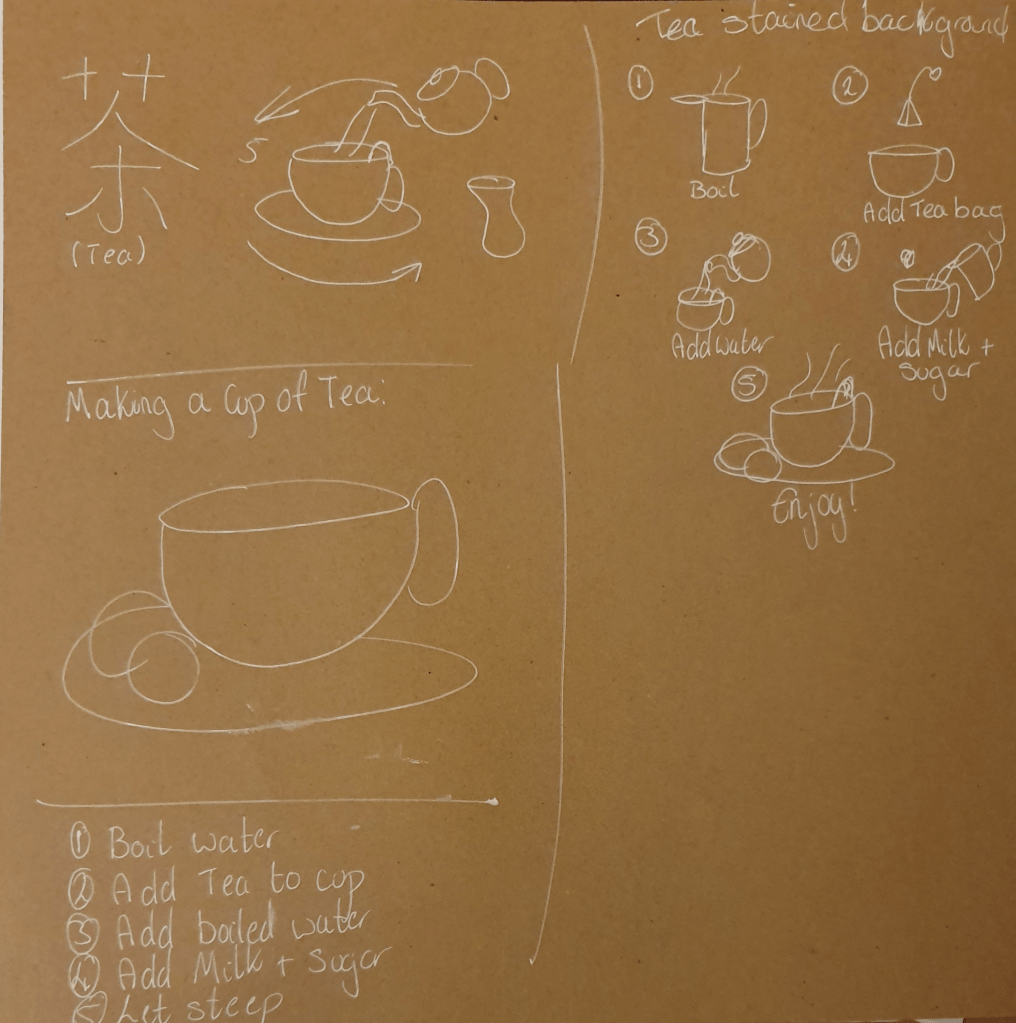 茶
(Tea)
5
Making a Cup of Tea:
① Boil water
② Add Tea to cup
③ Add boiled water
④ Add Milk + Sugar
⑤ Let steep
Tea stained background
①
Boil
②
Add Tea bag
③
Add water
④
Add Milk +
Sugar
⑤
Enjoy!